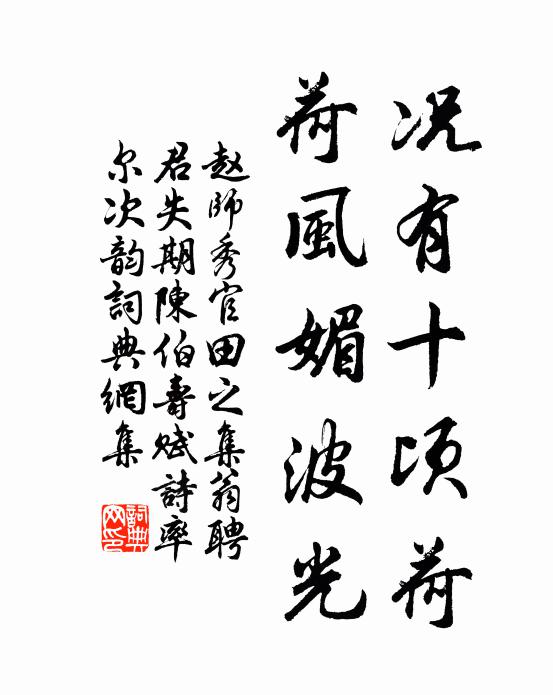 况有十顷荷
荷風媚波光
赵師秀官田之集翁聘
君失期陳伯壽赋詩率
尔次韵詞典網集
詞典
网印